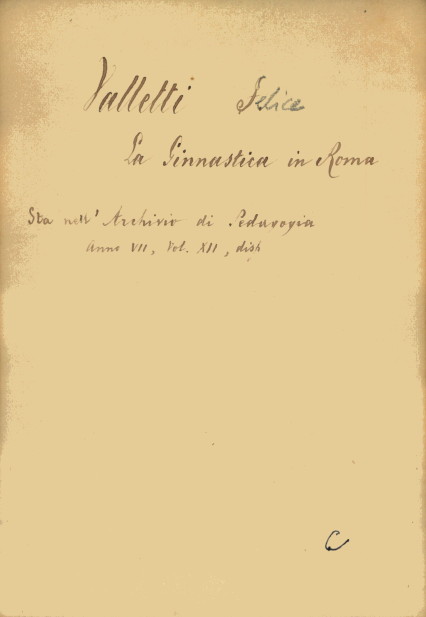 Valletti Felice
La Ginnastica in Roma
Sta nell' Archivio di Pedagogia
Anno VII, Vol. XII, disp
C